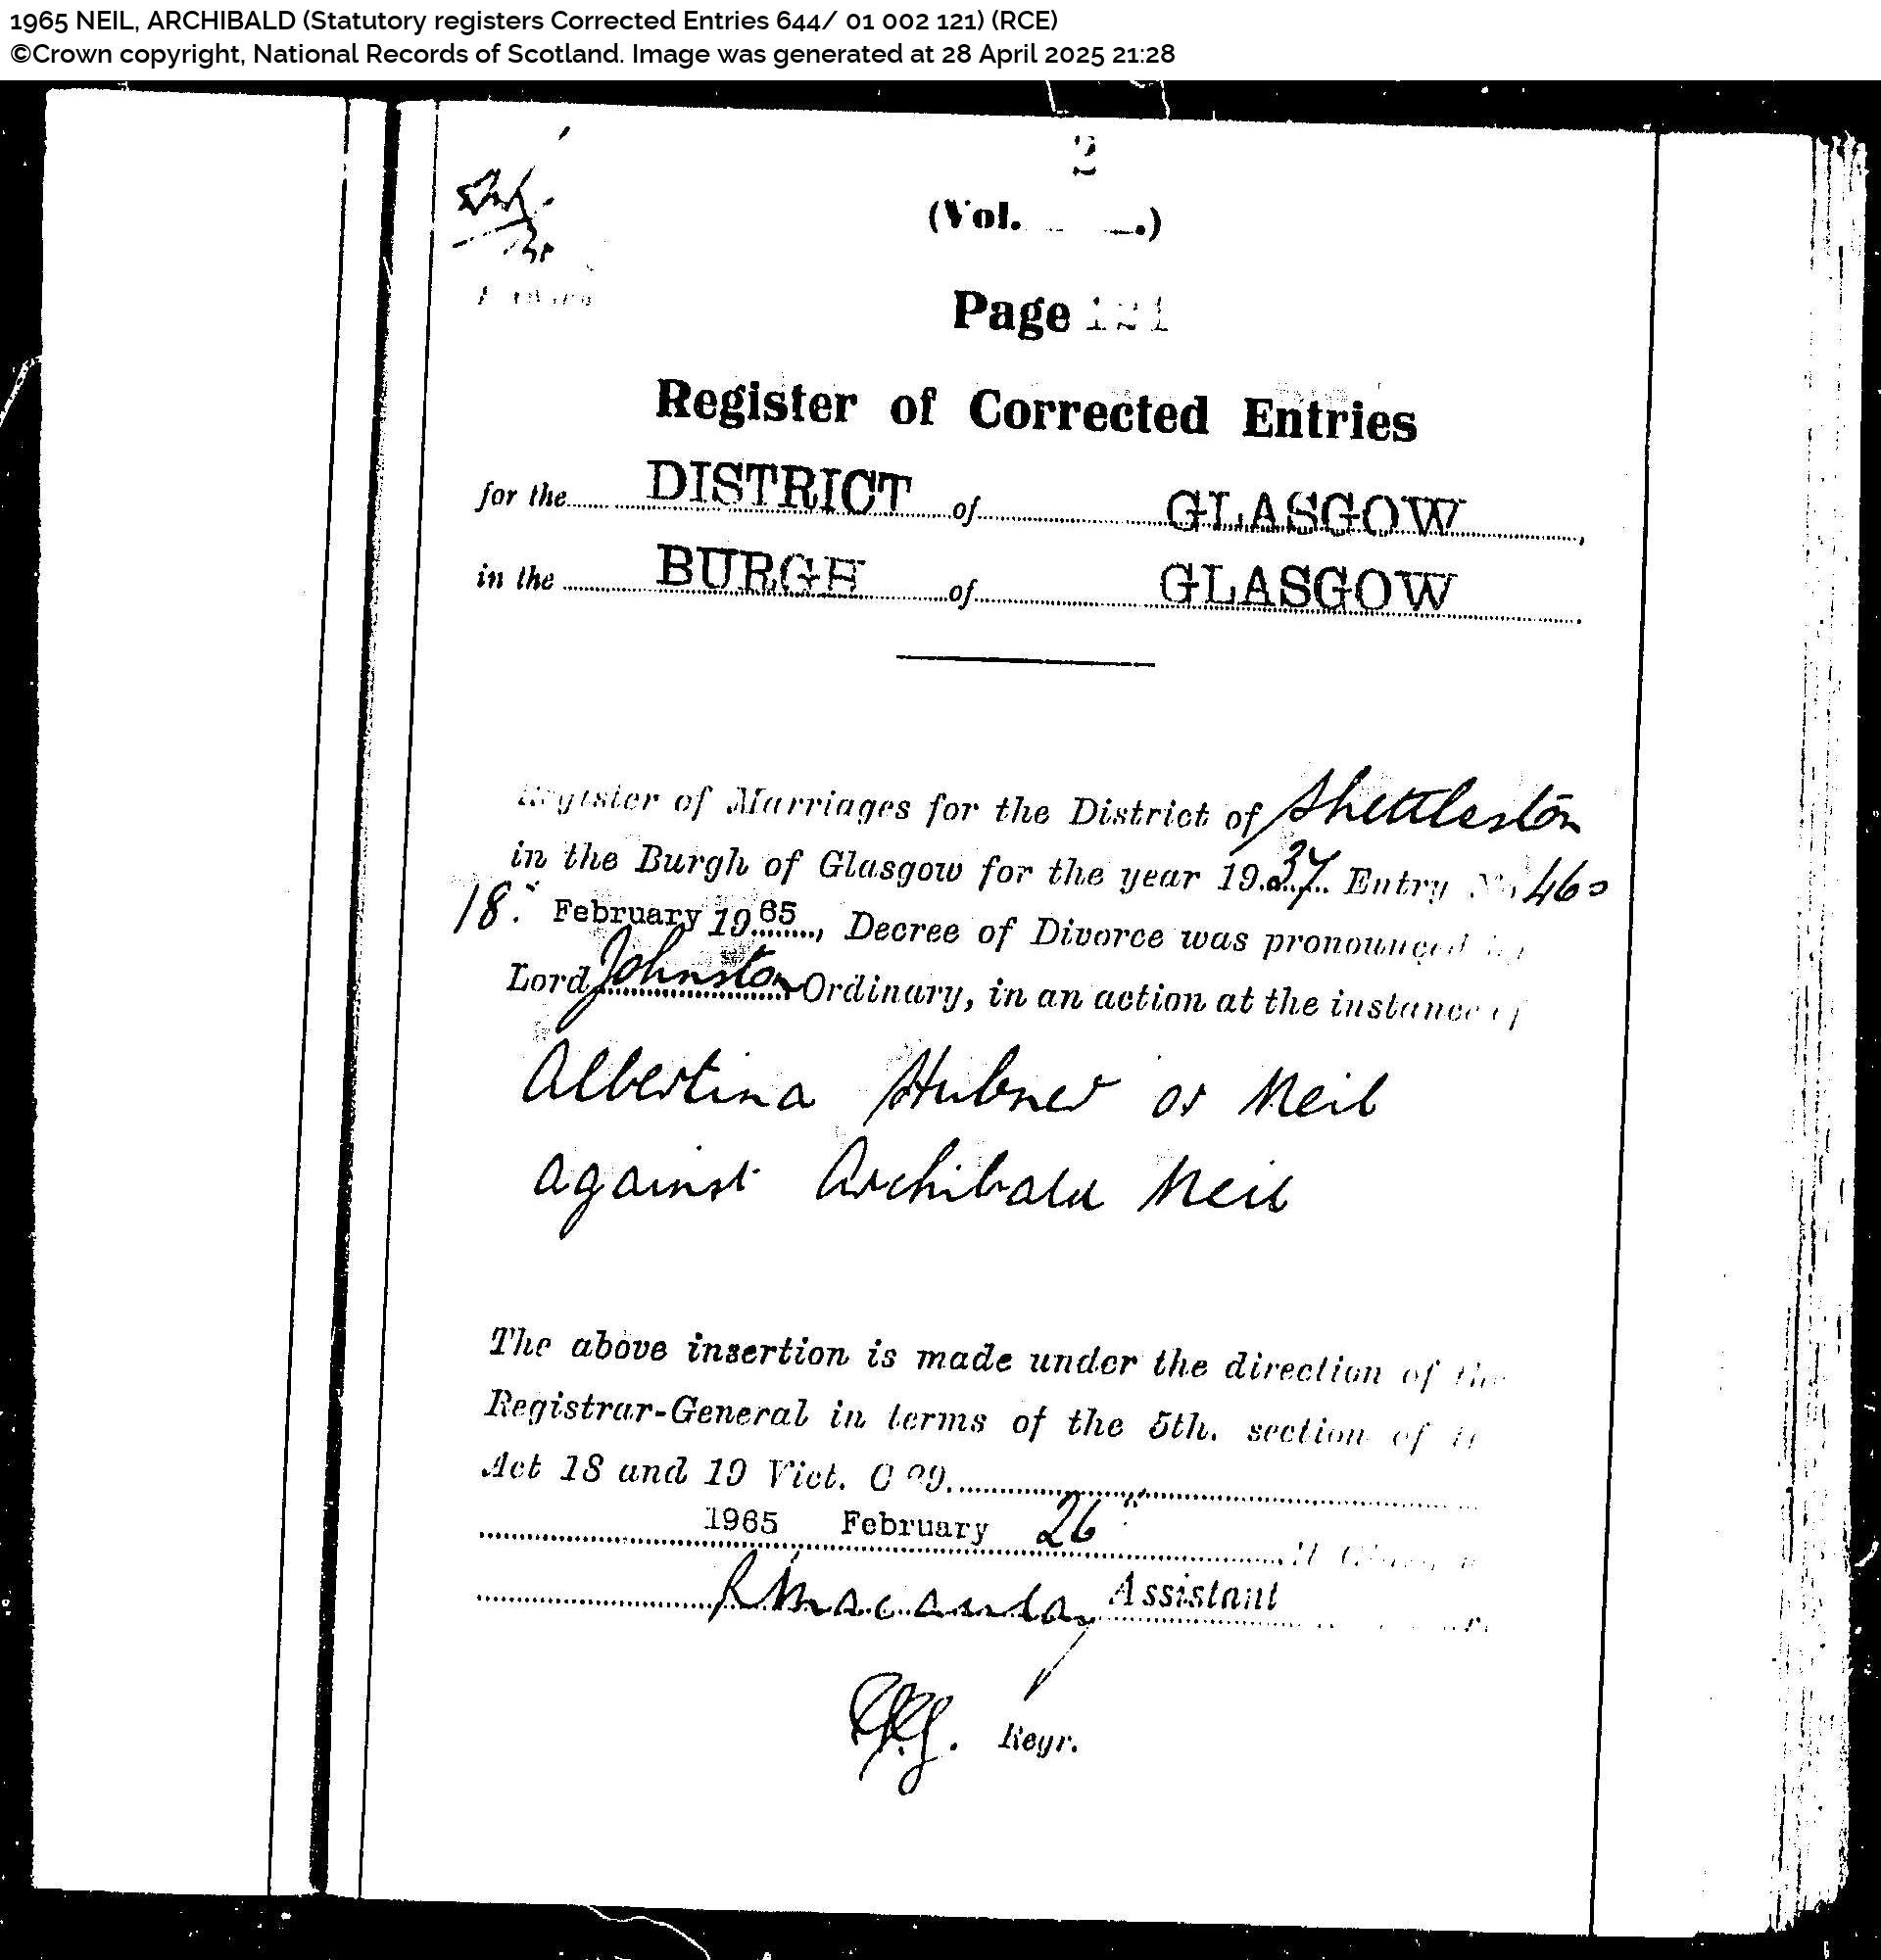 1965 NEIL, ARCHIBALD (Statutory registers Corrected Entries 644/ 01 002 121) (RCE)
©Crown copyright, National Records of Scotland. Image was generated at 28 April 2025 21:28
2
(Vol. .)
Page 121
Register of Corrected Entries
for the DISTRICT of GLASGOW,
in the BURGH of GLASGOW.
Register of Marriages for the District of Shettleston
in the Burgh of Glasgow for the year 1937. Entry No 460
18. February 1965, Decree of Divorce was pronounced by
Lord Johnston Ordinary, in an action at the instance of
Albertina Hubner or Neil
against Archibald Neil
The above insertion is made under the direction of the
Registrar-General in terms of the 5th. section of
Act 18 and 19 Vict. C 29.
1965 February 26
Assistant
Regr.